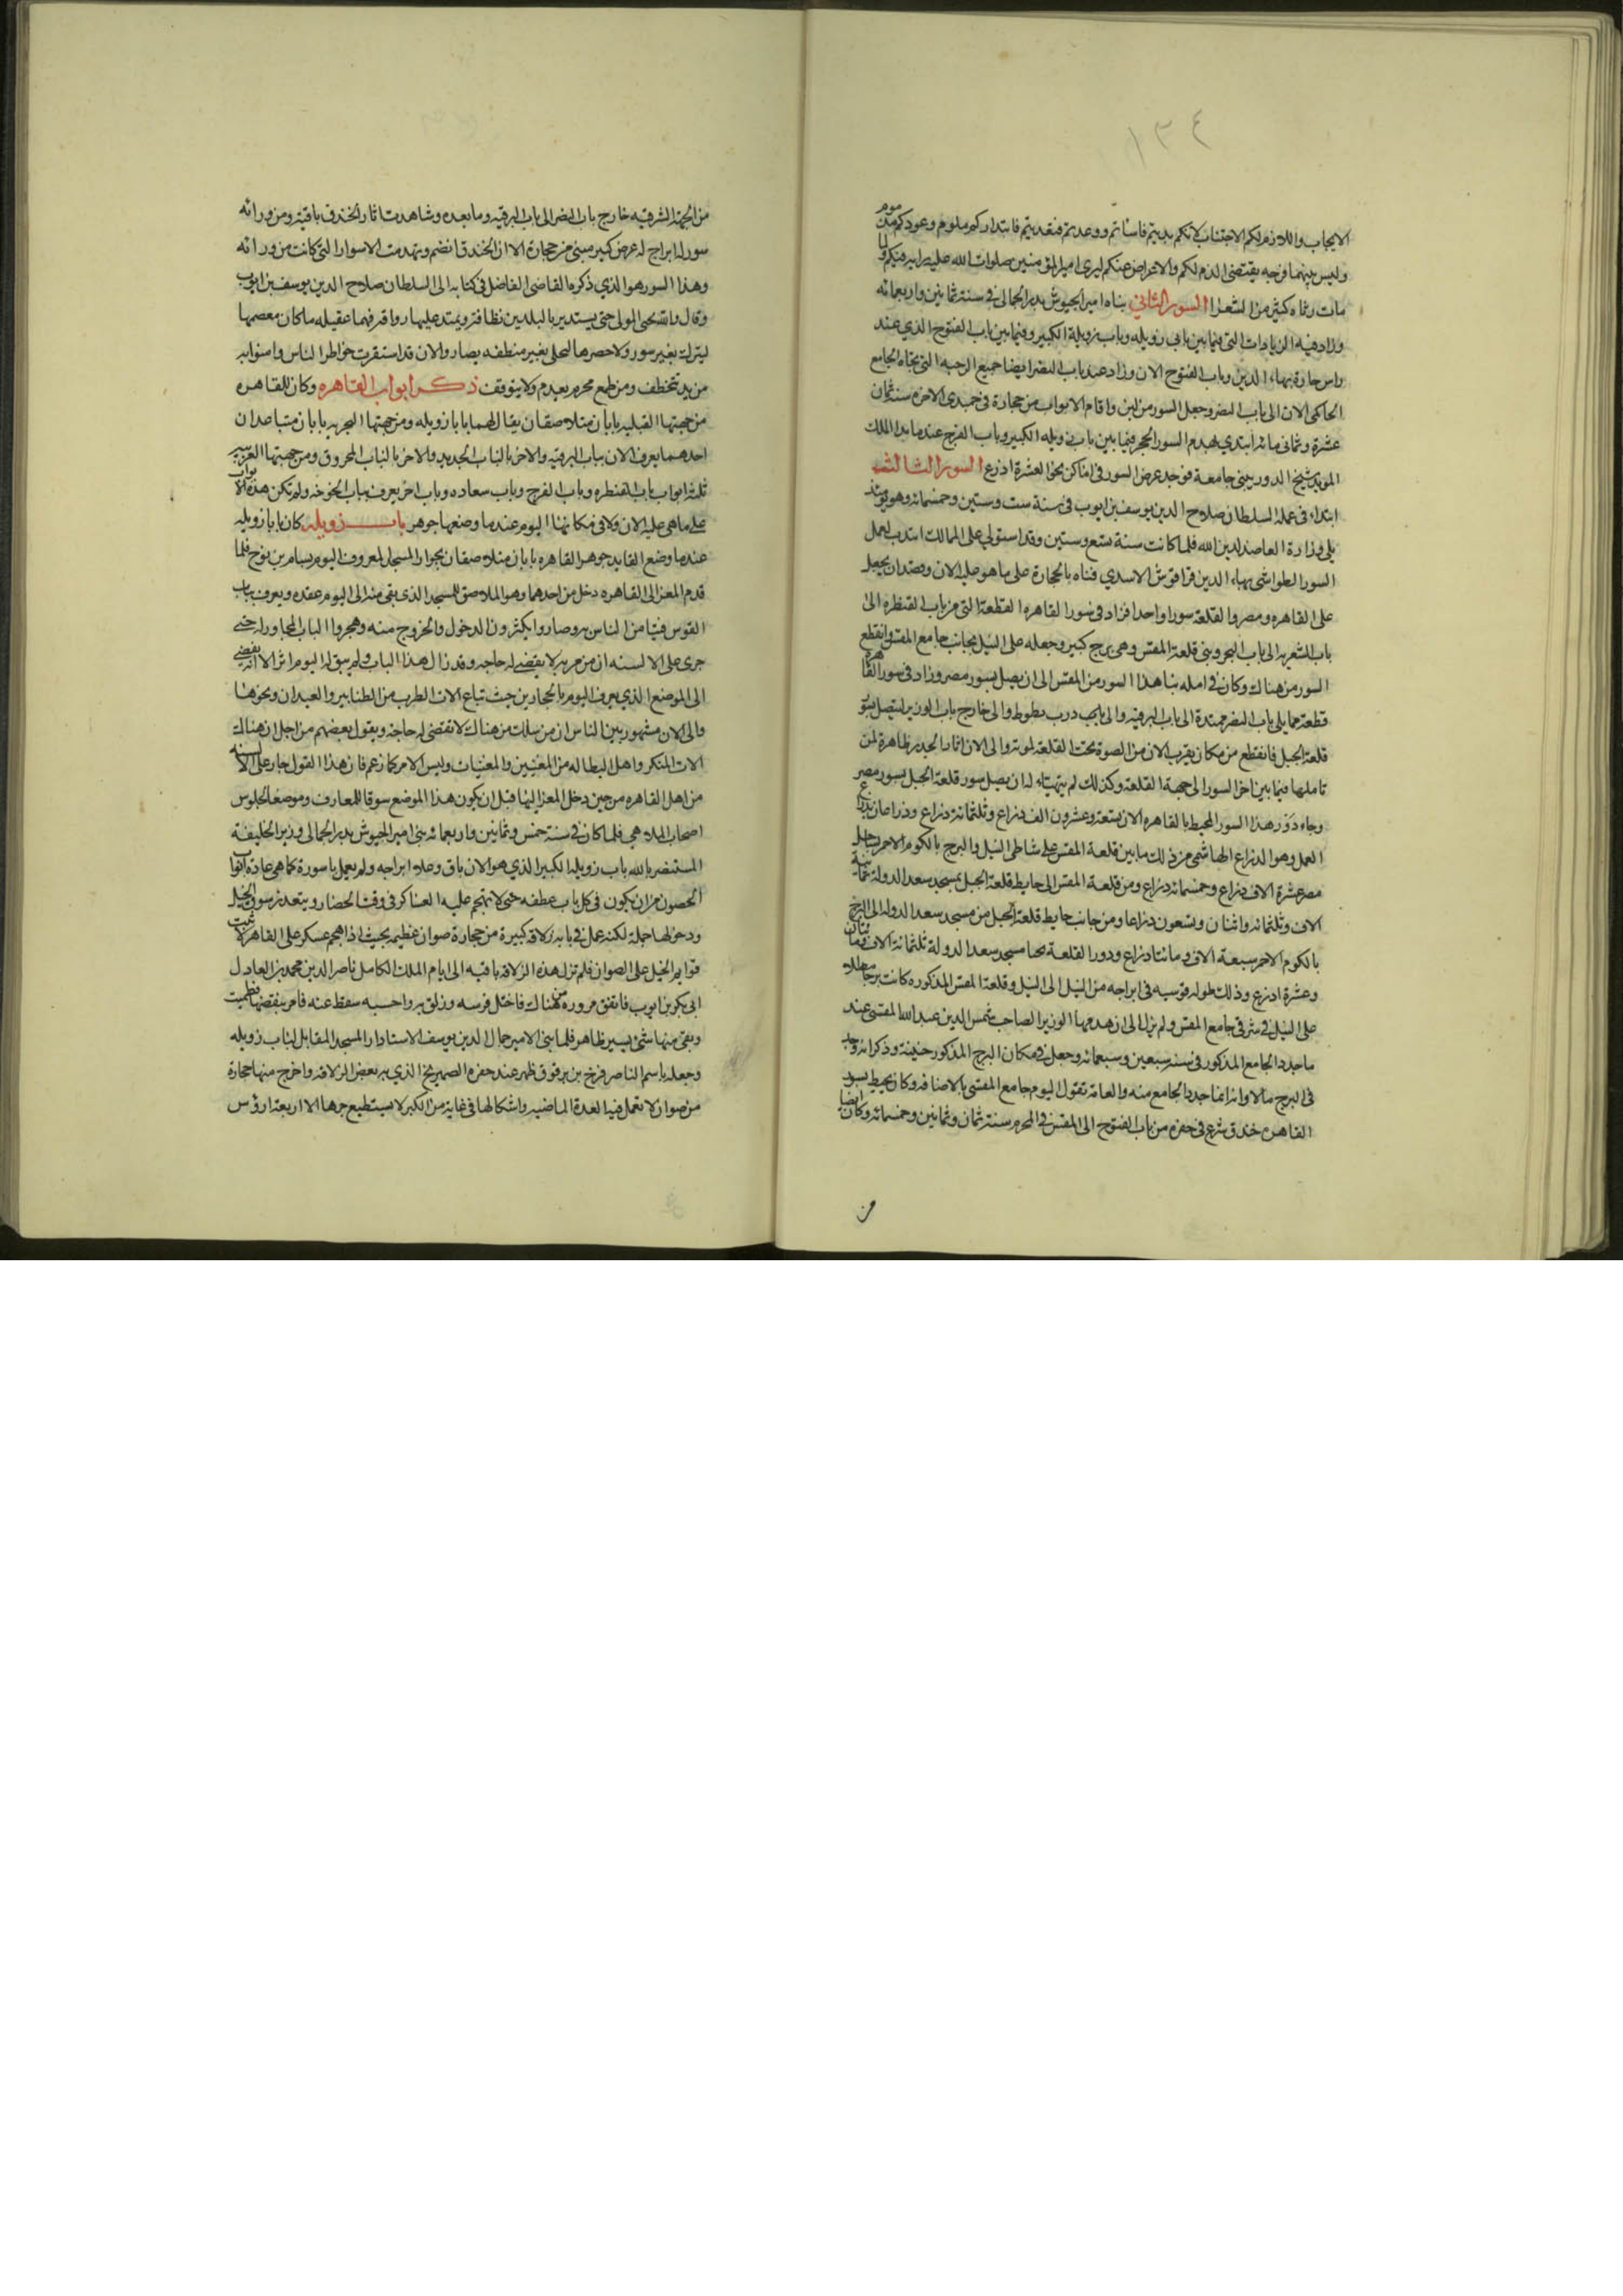 ١٣٤
الايجاب واللازم لكم الاجتناب لانكم بديتم فاساتم ووعدتم فتعديتم فابتداوكم ملوم وعودكم مذموم
وليس بينهما فرجه يقتضى الذم لكم والاعراض عنكم ليرى امير المؤمنين صلوات الله عليه رايه فيكم ولما
مات رثاه كثير من الشعرا السور الثاني بناه امير الجيوش بدر الجمالى فى سنة ثمانين واربعمائه
وزاد فيه الزيادات التى فيما بين بابى زويله وباب زويلة الكبير وفيما بين باب الفتوح الذى عند
راس حارة بهاء الدين وباب الفتوح الان وزاد عند باب النصر ايضا جميع الرحبه التى تجاه الجامع
الحاكمى الان الى باب النصر وجعل السور من لبن واقام الابواب من حجارة فى جمدى الاخره سنة ثمان
عشرة وثمانى مائه ابتدى بهدم السور الحجر فيما بين باب زويله الكبير وباب الفرج عندما هدم الملك
المويد شيخ الدور يبنى جامعه فوجد عرض السور فى اماكن نحو العشرة اذرع السور الثالث
ابتداء فى عمله السلطان صلاح الدين يوسف بن ايوب فى سنة ست وستين وخمسمائه وهو يومئذ
يلى وزارة العاضد لدين الله فلما كانت سنة تسع وستين وقد استولى على الممالك انتدب لعمل
السور الطواشى بهاء الدين قراقوش الاسدى فبناه بالحجارة على ما هو عليه الان وقصد ان يجعل
على القاهره ومصر والقلعة سورا واحدا فزاد فى سور القاهره القطعة التى من باب القنطره الى
باب الشعريه الى باب البحر وبنى قلعة المقس وهى برج كبير وجعله على النيل بجانب جامع المقس وانقطع
السور من هناك وكان فى امله بنا هذا السور من المقس الى ان يصل بسور مصر وزاد فى سور القاهره
قطعة مما يلى باب النصر ممتدة الى باب البرقيه والى باب درب بطوط والى خارج باب الوزير ليتصل بسور
قلعة الجبل فانقطع من مكان يقرب الان من الصوة تحت القلعة لموته والى الان اثار الجدر ظاهرة لمن
تاملها فيما بين اخر السور الى جهة القلعة وكذلك لم يتهياء له ان يصل سور قلعة الجبل بسور مصر
وجاء دور هذا السور المحيط بالقاهره الان تسعة وعشرون الف ذراع وثلثمائة ذراع وذراعان بذراع
العمل وهو الذراع الهاشمى من ذلك ما بين قلعة المقس على شاطى النيل والبرج بالكوم الاحمر بساحل
مصر عشرة الاف ذراع وخمسمائه ذراع ومن قلعة المقس الى حايط قلعة الجبل بمسجد سعد الدوله ثمانية
الاف وثلثمائه واثنان وتسعون ذراعا ومن جانب حايط قلعة الجبل من مسجد سعد الدوله الى البرج
بالكوم الاحمر سبعة الاف ومائتا ذراع ودور القلعة بحيا مسجد سعد الدولة ثلثمائة الاف ومائتان
وعشرة اذرع وذلك طول قوسيه فى ابراجه من النيل الى النيل وقلعة المقس المذكوره كانت برجا مطلا
على النيل فى شرقى جامع المقس ولم يزل الى ان هدمها الوزير الصاحب شمس الدين عبد الله المقسى عند
ما جدد الجامع المذكور فى سنه سبعين وسبعمائه وجعل فى مكان البرج المذكور جنينة وذكر انه وجد
فى البرج مالا وانه انما جدد الجامع منه والعامة تقول اليوم جامع المقسى بالاضافه وكان يحيط بسور
القاهره خندق شرع فى حفره من باب الفتوح الى المقس فى المحرم سنة ثمان وثمانين وخمسمائه وكان ايضا
من
من الجهة الشرقيه خارج باب النصر الى باب البرقيه وما بعده وشاهدت اثار الخندق باقية ومن ورائه
سور له ابراج له عرض كبير مبنى من حجارة الا ان الخندق انضم وتهدمت الاسوار التى كانت من ورائه
وهذا السور هو الذى ذكره القاضى الفاضل فى كتابه الى السلطان صلاح الدين يوسف بن ايوب
وقال والله يحيى المولى حتى يستدير بالبلدين نطاقه ويمتد عليهما رواقه فهما عقيله ما كان معصمها
ليترك بغير سور ولا خصرها ليحلى بغير منطقه يصار والان قد استقرت خواطر الناس وامنوا به
من يد تتخطف ومن طمع مجرم يقدم ولا يتوقف ذكر ابواب القاهره وكان للقاهره
من جهتها القبليه بابان متلاصقان يقال لهما بابا زويله ومن جهتها البحريه بابان متباعدان
احدهما يعرف الان بباب البرقيه والاخر بالباب الجديد والاخر بالباب المحروق ومن جهتها الغربيه
ثلثة ابواب باب القنطره وباب الفرج وباب سعاده وباب اخر يعرف بباب الخوخه ولم تكن هذه الابواب
على ما هى عليه الان ولا فى مكانها اليوم عندما وضعها جوهر باب زويله كان بابا زويله
عندما وضع القايد جوهر القاهره بابان متلاصقان بجوار المسجد المعروف اليوم بسام بن نوح فلما
قدم المعز الى القاهره دخل من احدهما وهو الملاصق للمسجد الذى بقى منه الى اليوم عقده ويعرف بباب
القوس فتيامن الناس به وصاروا يكثرون الدخول والخروج منه وهجروا الباب المجاور له حتى
جرى على الالسنه ان من مر به لا يقضى له حاجه وقد زال هذا الباب ولم يبق له اليوم اثر الا انه يفضى
الى الموضع الذى يعرف اليوم بالحجارين حيث تباع الات الطرب من الطنابير والعيدان ونحوهما
والى الان مشهور بين الناس ان من سلك من هناك لا تقضى له حاجه ويقول بعضهم من اجل ان هناك
الات المنكر واهل البطاله من المغنيين والمغنيات وليس الامر كما زعم فان هذا القول جار على الالسنه
من اهل القاهره من حين دخل المعز اليها قبل ان يكون هذا الموضع سوقا للمعازف وموضعا لجلوس
اصحاب الملاهى فلما كان فى سنة خمس وثمانين واربعمائه بنى امير الجيوش بدر الجمالى وزير الخليفة
المستنصر بالله باب زويله الكبير الذى هو الان باق وعلا ابراجه ولم يعمل باسورة كما هى عادة ابواب
الحصون من ان يكون فى كل باب عطفه حتى لا تهجم عليه العساكر فى وقت الحصار ويتعذر سوق الخيل
ودخولها جملة لكنه عمل فى بابه زلاقه كبيرة من حجارة صوان عظيمه بحيث اذا هجم عسكر على القاهره لا تثبت
قوايم الخيل على الصوان فلم تزل هذه الزلاقه باقيه الى ايام الملك الكامل ناصر الدين محمد بن العادل
ابى بكر بن ايوب فاتفق مروره من هناك فاختل فرسه وزلق به واحسبه سقط عنه فامر بنقضها فنقضت
وبقى منها شئ يسير ظاهر فلما بنى الامير جمال الدين يوسف الاستادار المسجد المقابل لباب زويله
وجعله باسم الناصر فرج بن برقوق ظهر عند حفره الصهريج الذى به بعض الزلاقه واخرج منها حجارة
من صوان لا تعمل فيها العدة الماضيه واشكالها فى غاية من الكبر لا يستطيع جرها الا اربعة ارؤس